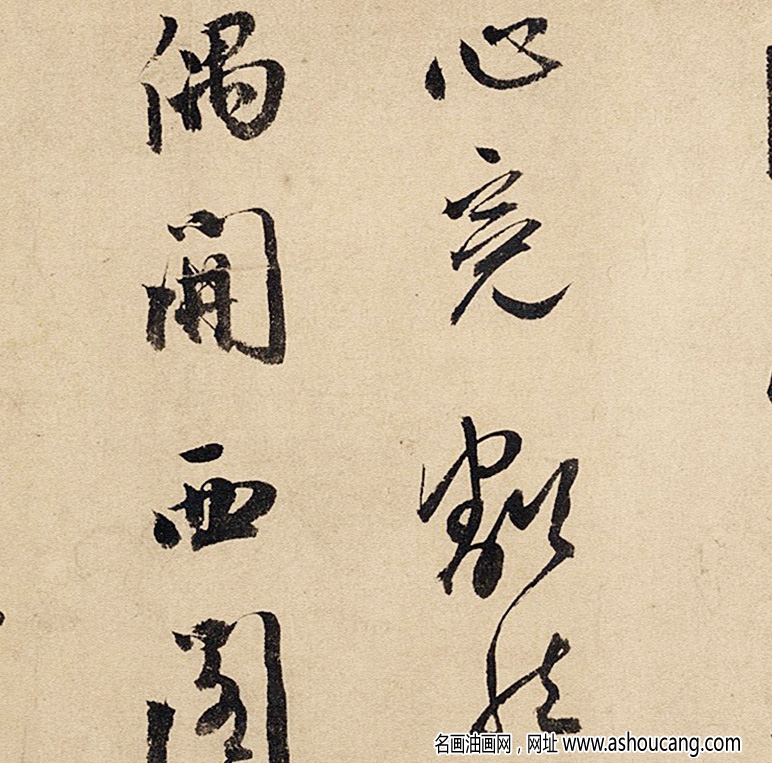 心竟豁然
偶開西閣
名画油画网，网址 www.ashoucang.com